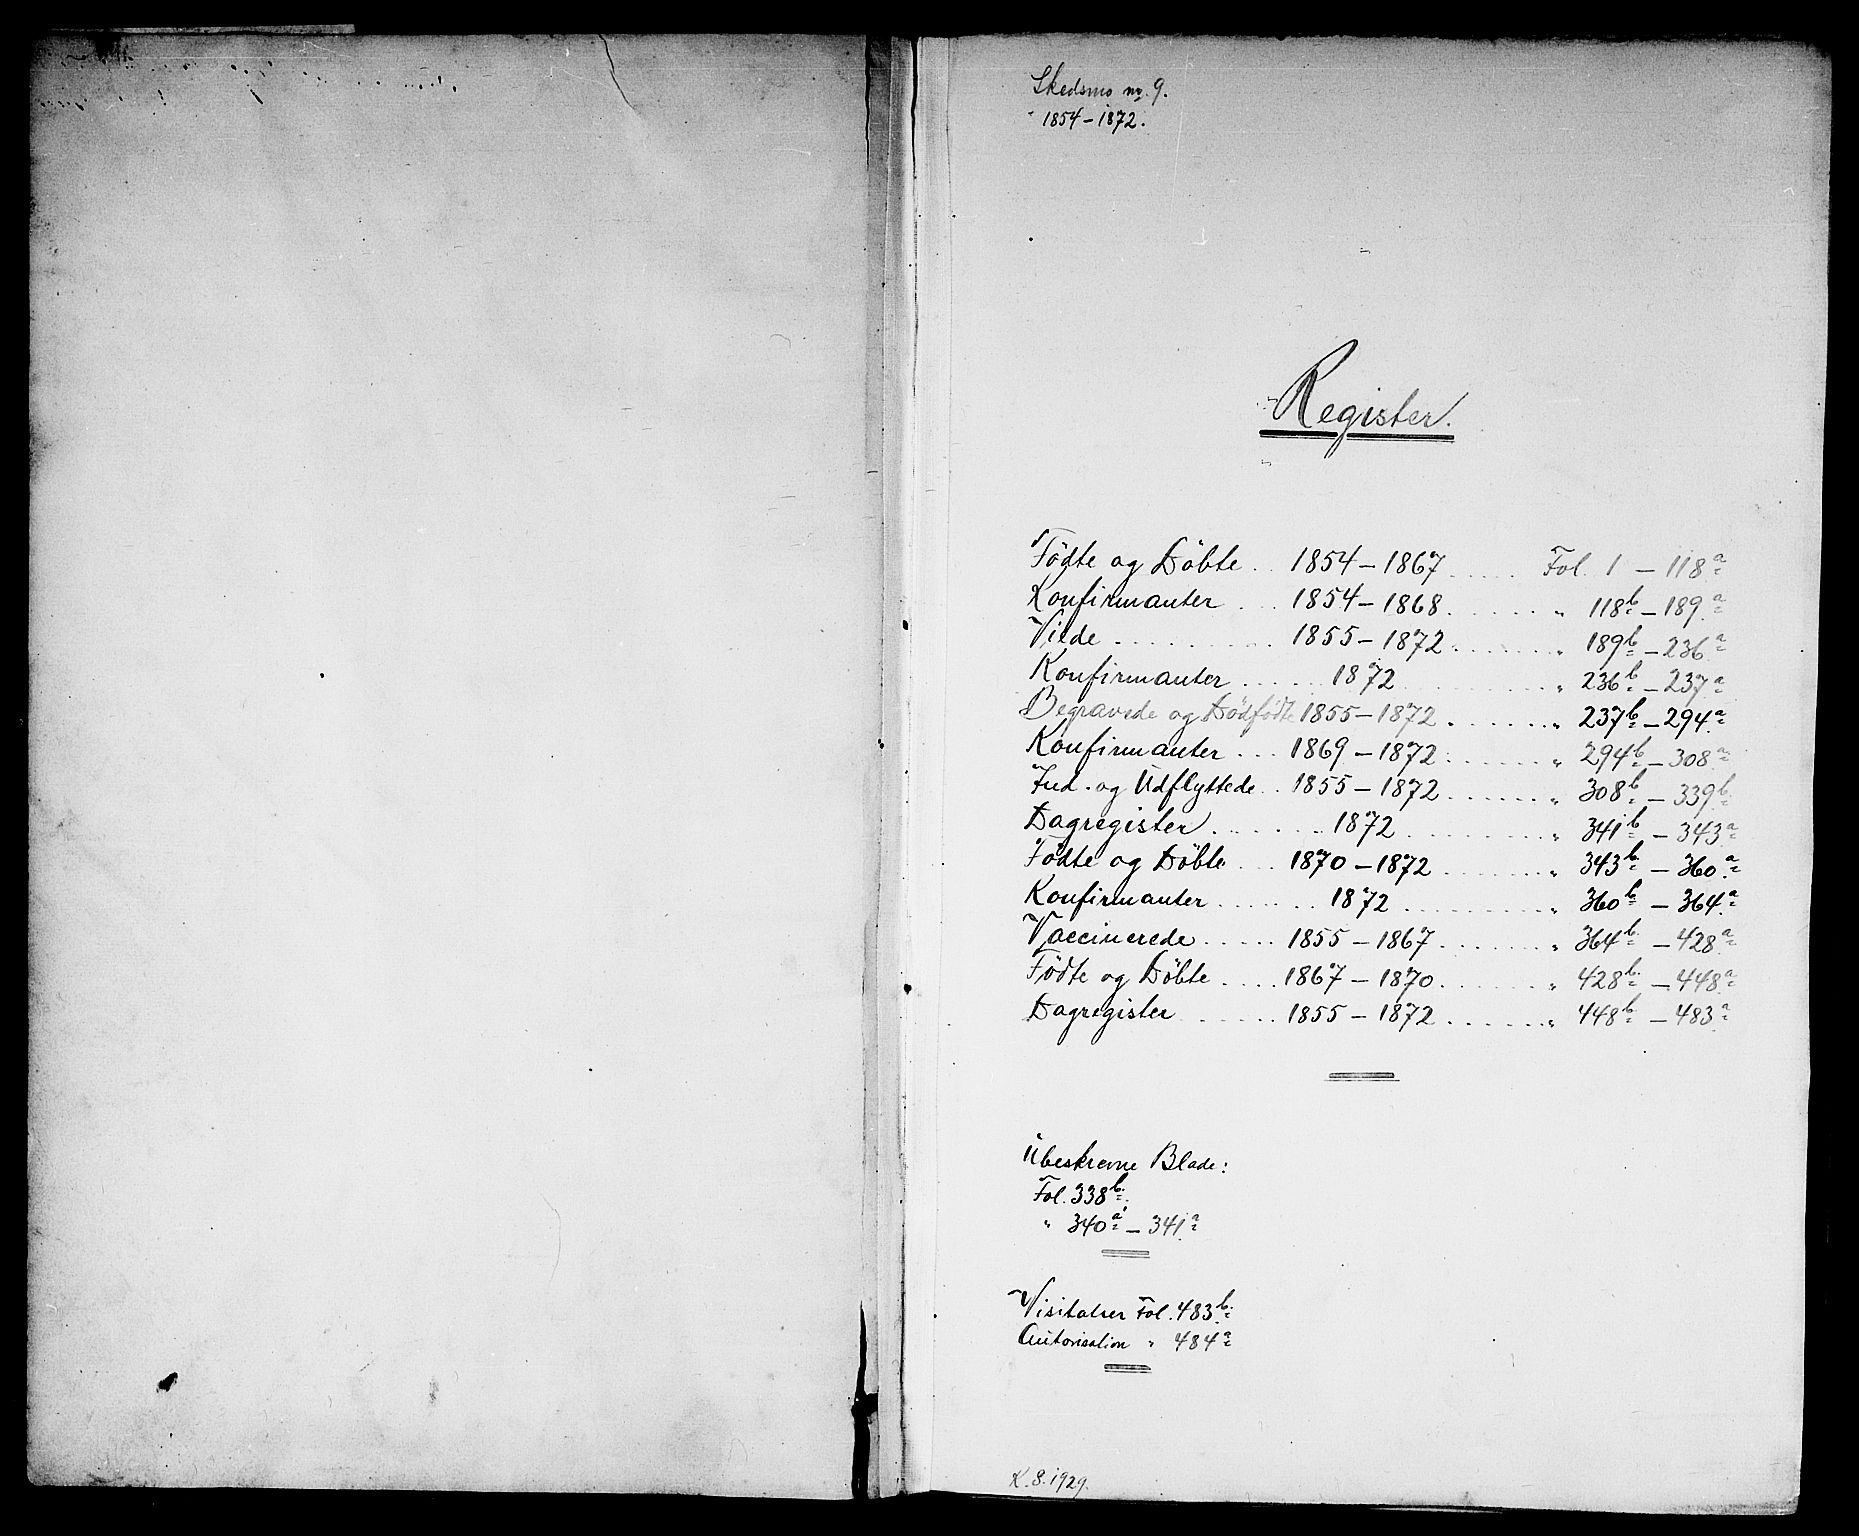 Skedsmo nr. 9.
1854 – 1872.
Register.
Födte og Döbte . . 1854 – 1867 . . . . . Fol. 1 – 118 a
Konfirmanter . . . 1854 – 1868 . . . . . . „ 118 b – 189 a
Viede . . . . . . . . . . 1855 – 1872 . . . . . . „ 189 b – 236 a
Konfirmanter . . . . . 1872 . . . . . . . . „ 236 b – 237 a
Begravede og Dödfödte 1855 – 1872 . . . . . . „ 237 b – 294 a
Konfirmanter . . . 1869 – 1872 . . . . . . „ 294 b – 308 a
Ind- og Udflyttede . . 1855 – 1872 . . . . . . „ 308 b – 339 b
Dagregister . . . . . . 1872 . . . . . . . . „ 341 b – 343 a
Födte og Döbte . . . 1870 – 1872 . . . . . . „ 343 b – 360 a
Konfirmanter . . . . . . 1872 . . . . . . . . „ 360 b – 364 a
Vaccinerede . . . . . 1855 – 1867 . . . . . . „ 364 b – 428 a
Födte og Döbte . . . . 1867 – 1870 . . . . . . „ 428 b – 448 a
Dagregister . . . . . . 1855 – 1872 . . . . . . „ 448 b – 483 a
Ubeskrevne Blade:
Fol. 338 b.
„ 340 a – 341 a
Visitatser Fol. 483 b
Autorisation „ 484 a
K. 8. 1929.